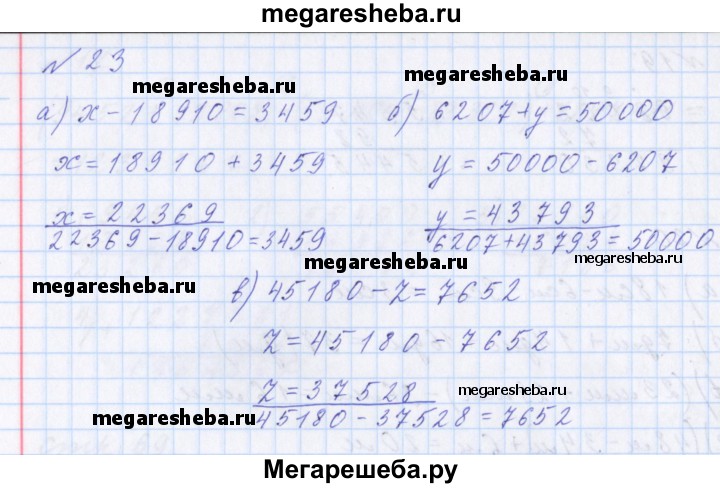 megaresheba.ru
№ 23
megaresheba.ru megaresheba.ru
а) x - 18910 = 3459 б) 6207 + y = 50000
x = 18910 + 3459 y = 50000 - 6207
x = 22369 y = 43793
22369 - 18910 = 3459 6207 + 43793 = 50000
megaresheba.ru megaresheba.ru
megaresheba.ru в) 45180 - z = 7652
z = 45180 - 7652
z = 37528 megaresheba.ru
megaresheba.ru 45180 - 37528 = 7652
Мегарешеба.ру